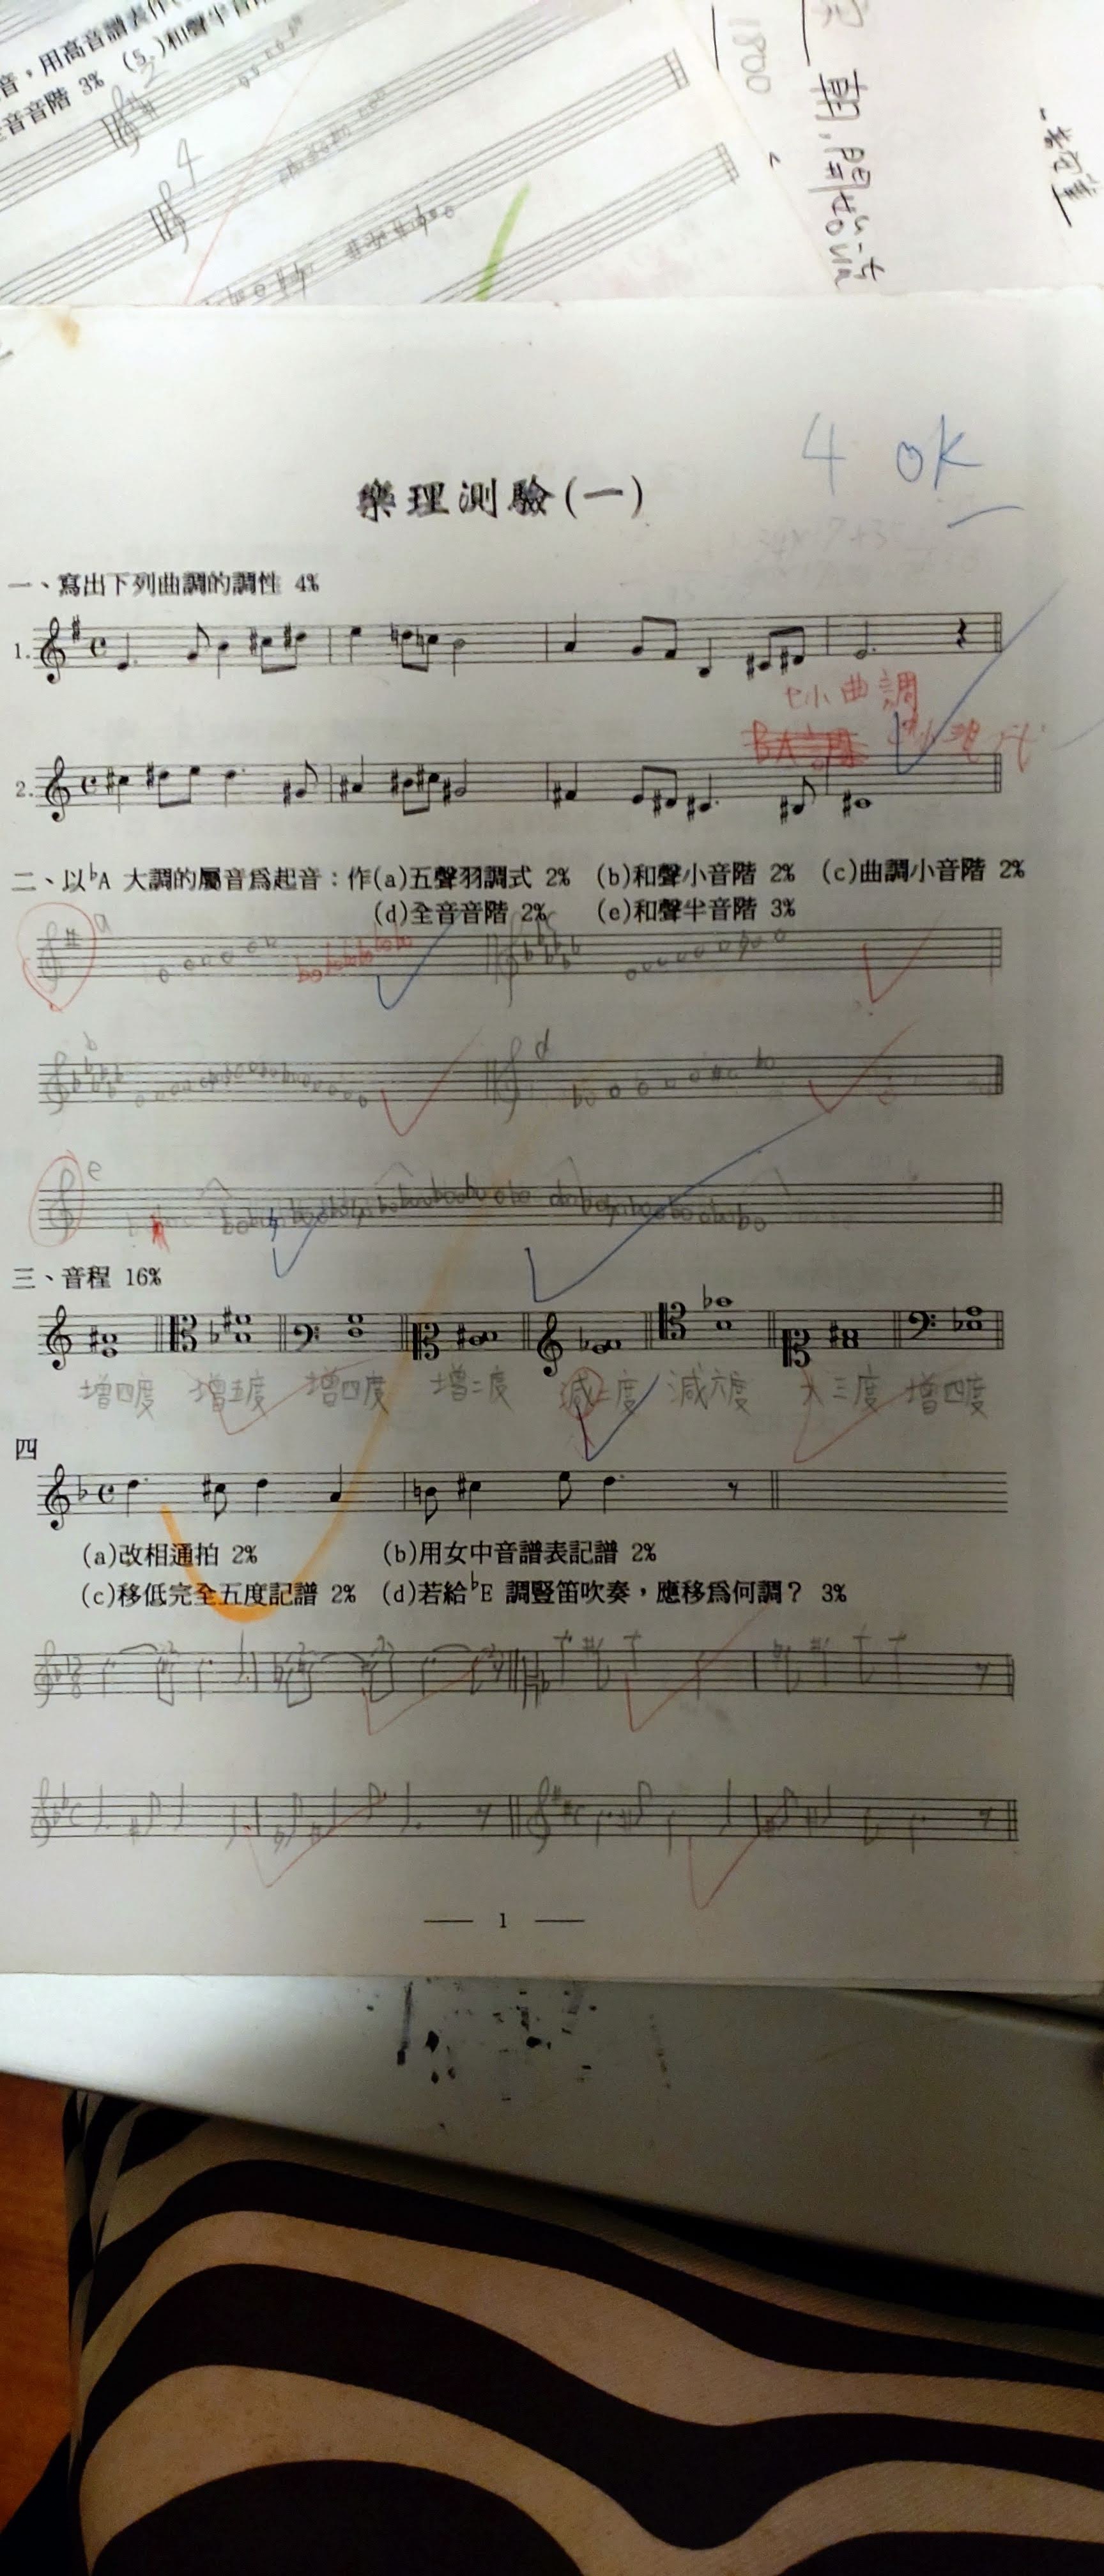 音，用高音譜表作
全音音階 3% (5.)和聲半音階
2
4
1800
朝,
4 ok
樂理測驗(一)
一、寫出下列曲調的調性 4%
1.
七小曲調
2.
二、以♭A 大調的屬音爲起音：作(a)五聲羽調式 2% (b)和聲小音階 2% (c)曲調小音階 2%
(d)全音音階 2% (e)和聲半音階 3%
a
d
e
三、音程 16%
增四度 增五度 增四度 增二度 減二度 減六度 大三度 增四度
四
(a)改相通拍 2% (b)用女中音譜表記譜 2%
(c)移低完全五度記譜 2% (d)若給♭E 調豎笛吹奏，應移爲何調？ 3%
1